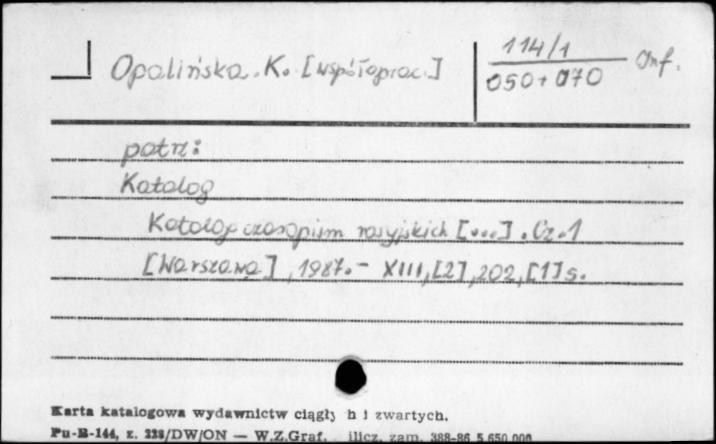 Opalińska. K. [współoprac.]
114/1
050+070 Inf.
patrz:
Katalog
Katalog czasopism rosyjskich [...]. Cz. 1
[Warszawa], 1987.- XIII,[2],202,[1]s.
Karta katalogowa wydawnictw ciągły h i zwartych.
Pu-B-144, z. 228/DW/ON — W.Z.Graf. zam. 388-86 5.650.000